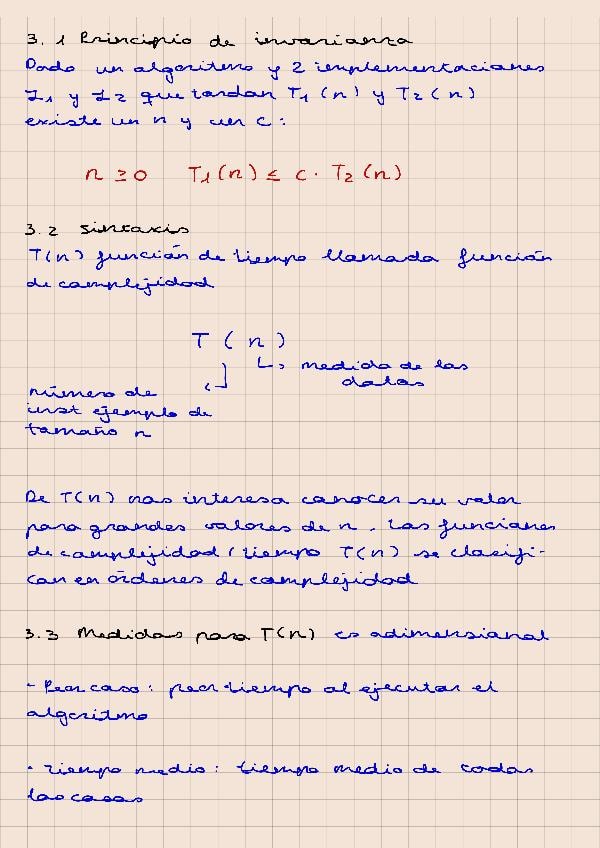 3.1 Principio de invarianza
Dado un algoritmo y 2 implementaciones
I1 y I2 que tardan T1(n) y T2(n)
existe un n y un c:
n ≥ 0 T1(n) ≤ c · T2(n)
3.2 Sintaxis
T(n) función de tiempo llamada función
de complejidad
T(n)
↳ medida de los
datos
número de
inst ejemplo de
tamaño n
De T(n) nos interesa conocer su valor
para grandes valores de n. Las funciones
de complejidad/tiempo T(n) se clasifi-
can en órdenes de complejidad
3.3 Medidas para T(n) es adimensional
- Peor caso: peor tiempo al ejecutar el
algoritmo
- Tiempo medio: tiempo medio de todos
los casos